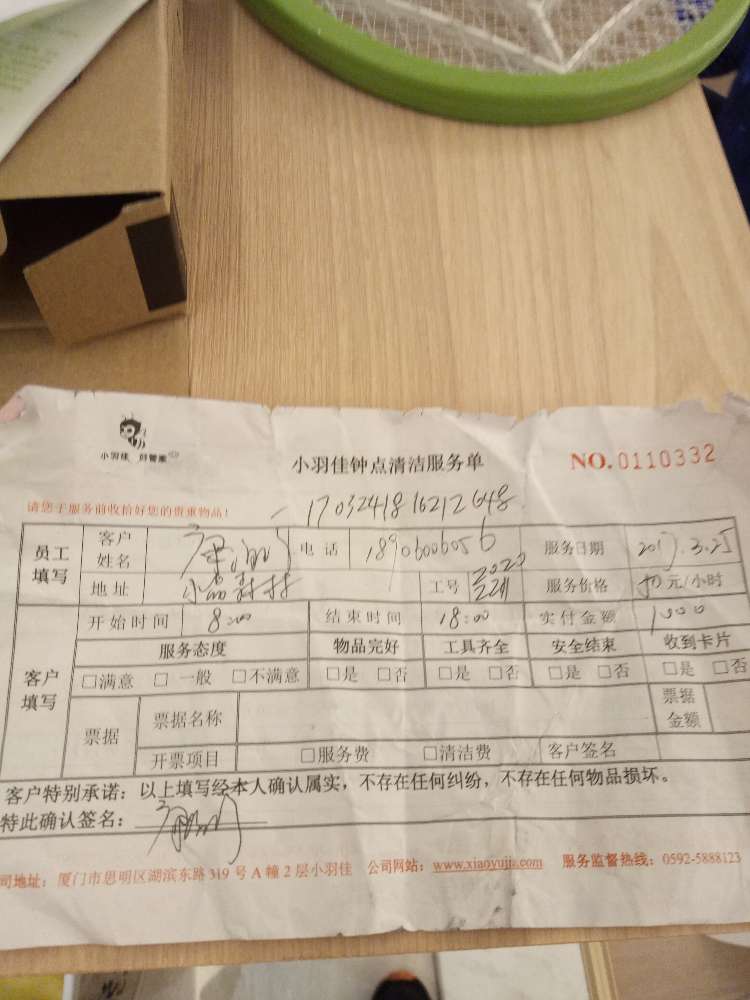 小羽佳 好管家
小羽佳钟点清洁服务单
NO.0110332
请您于服务前收拾好您的贵重物品!
1703241816212648
员工填写 客户姓名 电话 18906006056 服务日期 2017.3.25
地址 工号 2020 2211 服务价格 50元/小时
客户填写 开始时间 8:00 结束时间 18:00 实付金额 1000
服务态度 物品完好 工具齐全 安全结束 收到卡片
□满意 □一般 □不满意 □是 □否 □是 □否 □是 □否 □是 □否
票据 票据名称 票据金额
开票项目 □服务费 □清洁费 客户签名
客户特别承诺:以上填写经本人确认属实,不存在任何纠纷,不存在任何物品损坏。
特此确认签名:
司地址:厦门市思明区湖滨东路319号A幢2层小羽佳 公司网站:www.xiaoyujia.com 服务监督热线:0592-5888123